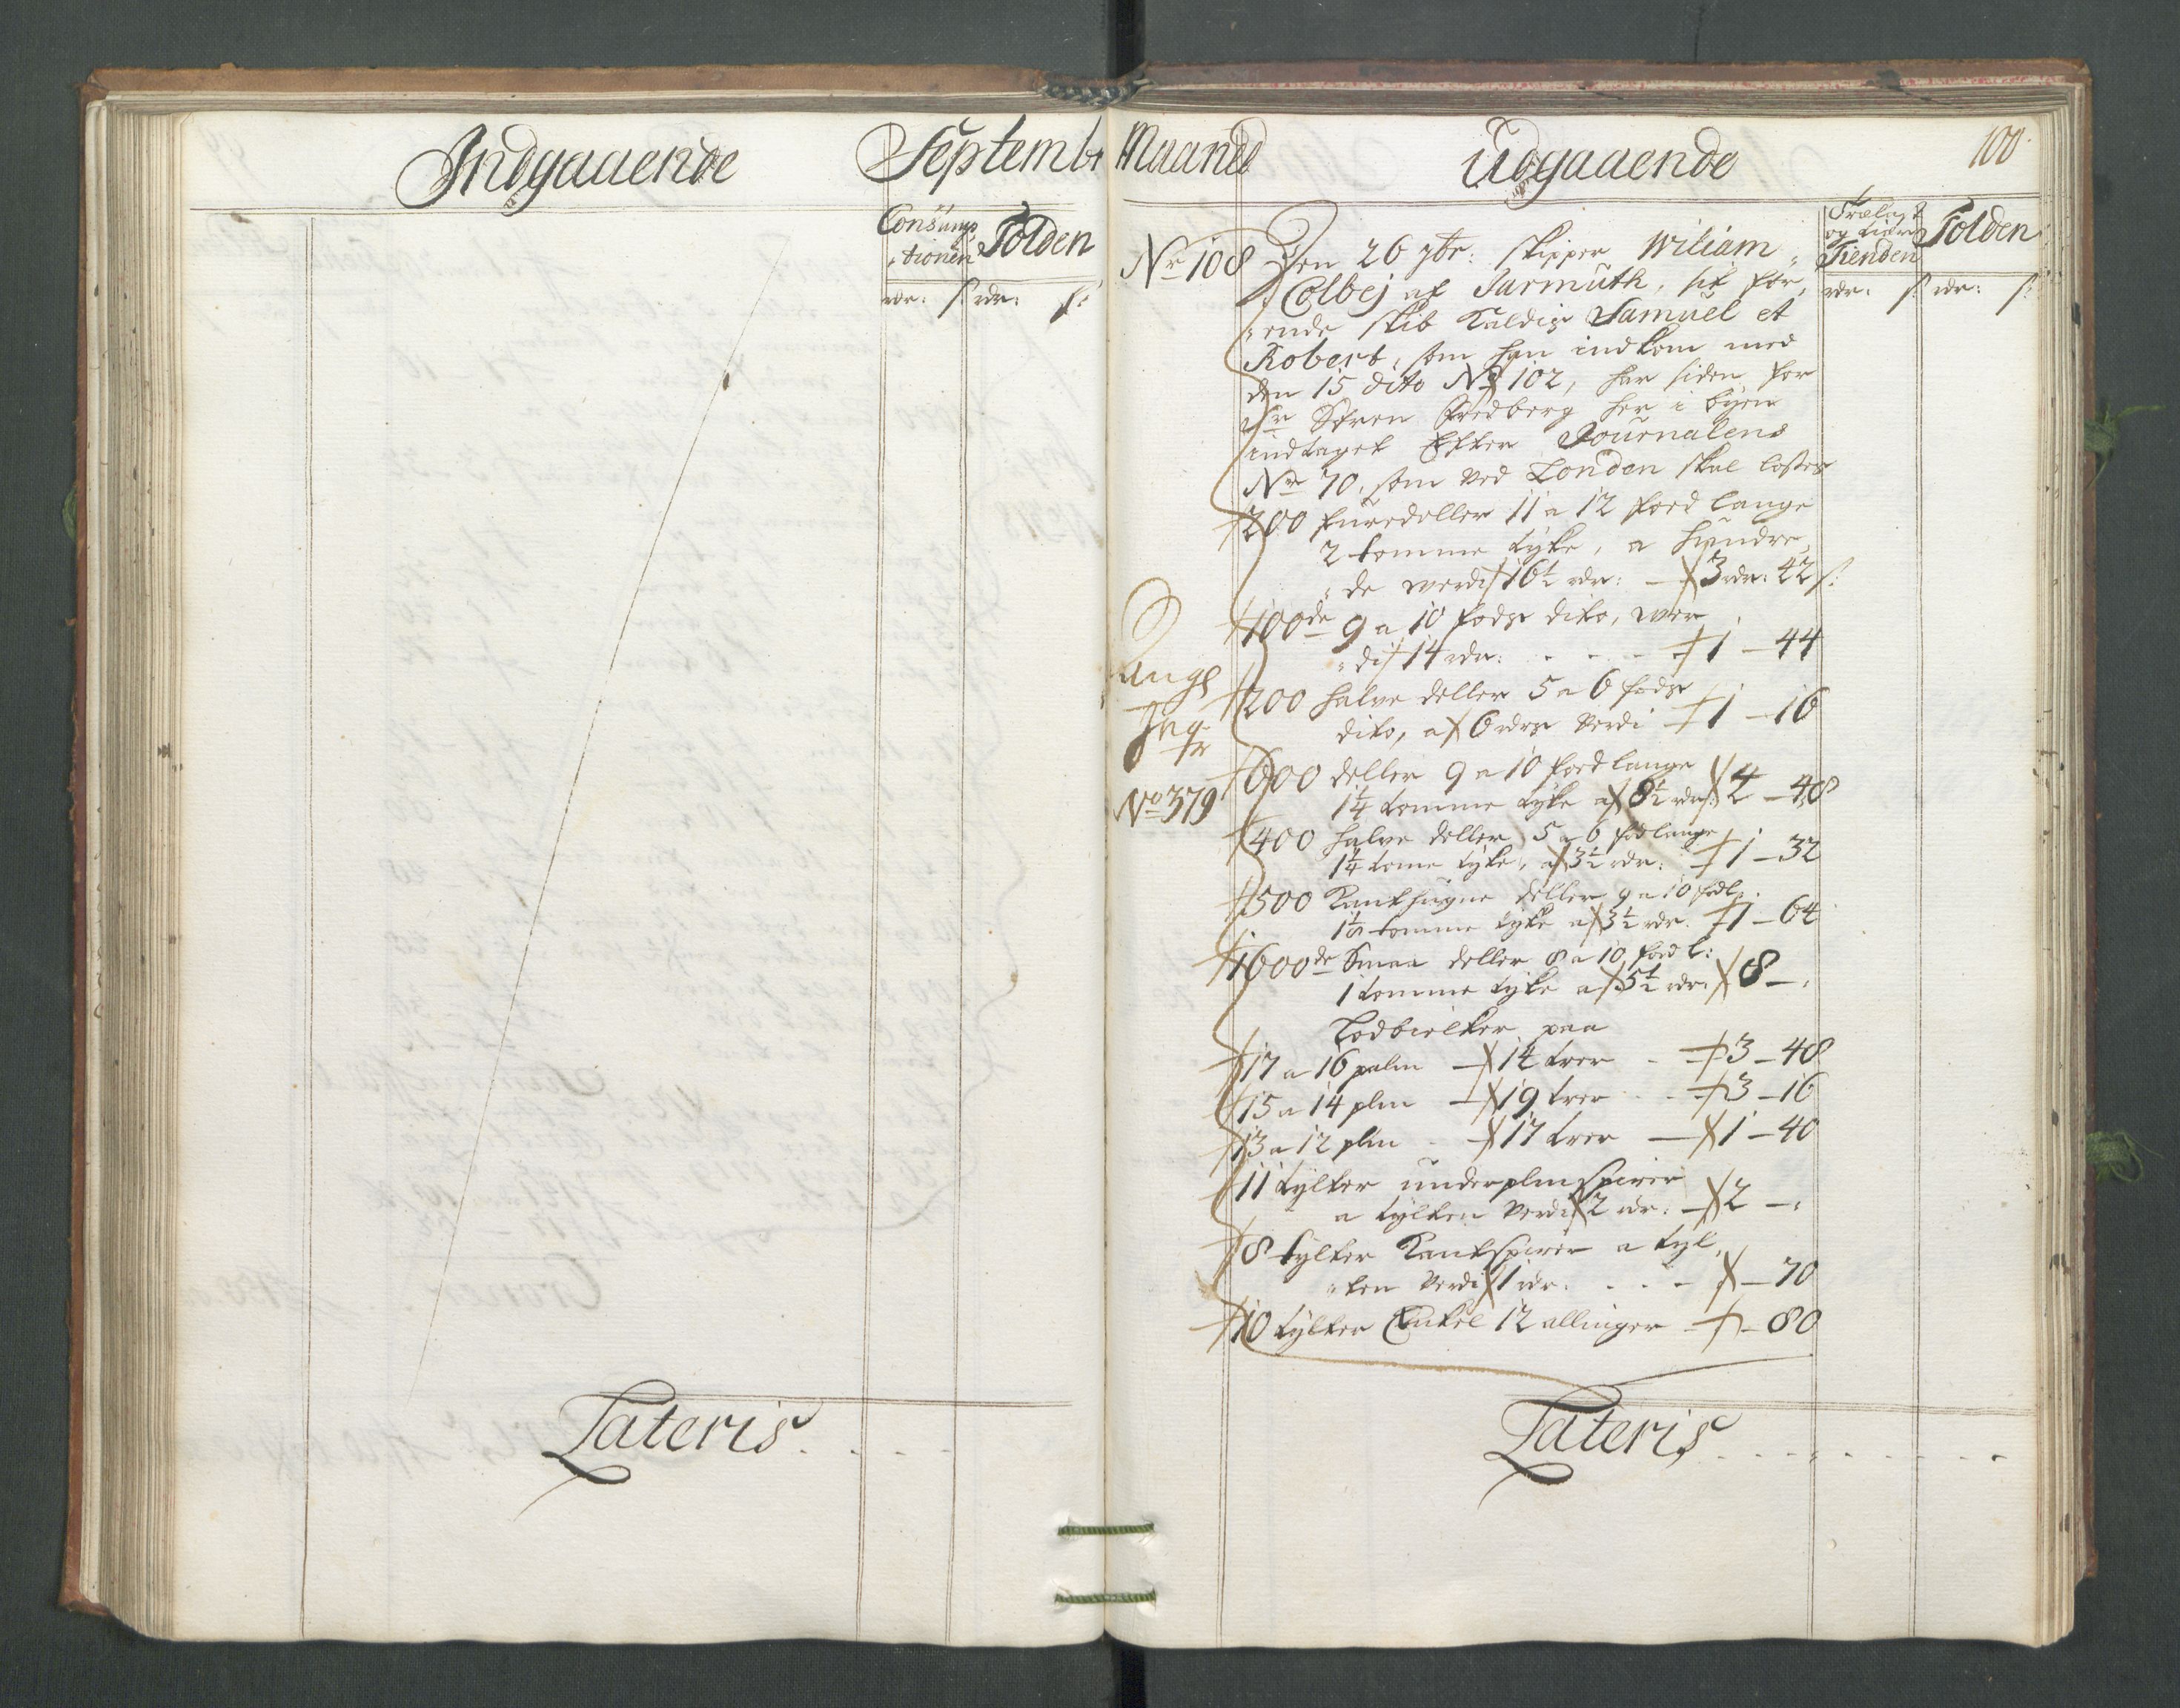 Indgaaende
Septembr Maaned
Udgaaende
100
Consump
tionen
Tolden
rdr: s: rdr: s:
Trælast
og tiære
Tienden
Tolden
rdr: s: rdr: s:
No 108
Den 26 7br: skipper Wiliam
Colbej af Jarmuth, sit før,
ende skib kaldis Samuel et
Robert, som han indkom med
den 15 dito No 102, har siden for
Sr Søren Fredberg her i byen
indtaget Efter Journalens
No 70, som ved Londen skal losses
200 furedeller 11 a 12 foed lange
2 tomme tyke, a hundre,
de werdi 16½ rdr: 3 rdr: 42 s:
100de 9 a 10 fods dito, wer
di 14 rdr: - - - 1 - 44
200 halve deller 5 a 6 fods
dito, a 6 rdrs verdi 1 - 16
600 deller 9 a 10 foed lange
1¼ tomme tyke a 8½ rdr: 4 - 48
400 halve deller 5 a 6 fod lange
1¼ tome tyke, a 3½ rdr: 1 - 32
500 Kanthugne deller 9 a 10 fod l:
tomme tyke a 3½ rdr. 1 - 64
1600de Smaa deller 8 a 10 foed l:
1 tomme tyke a 5½ rdr: 8 - „
Lodbielker paa
17 a 16 palm - 14 trer - 3 - 48
15 a 14 plm - 19 trer - - 3 - 16
13 a 12 plm - 17 trer - 1 - 40
11 tylter underplmspirer
a tylten verdi 2 rdr: - 2 - „
8 tylter Kantspirer a tyl,
ten verdi 1 rdr. - - - - 70
10 tylter Enkel 12 allinger - - 80
No 379
Lateris . . . .
Lateris . . . . . . . .